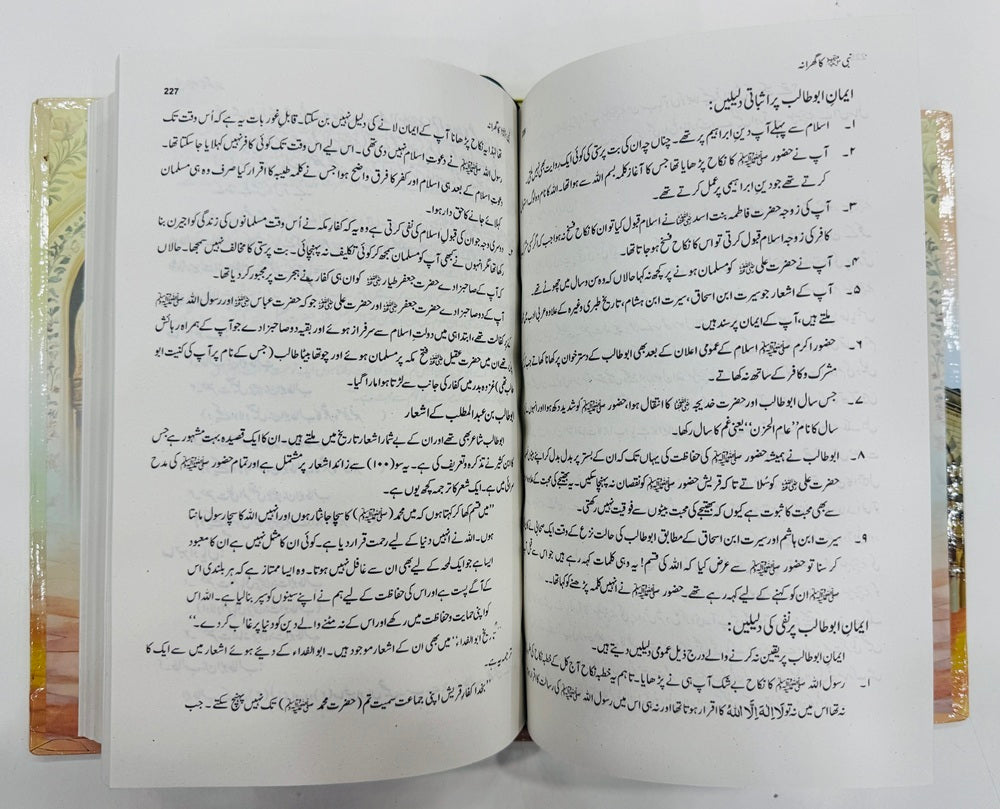 نبی ﷺ کا گھرانہ
ایمانِ ابوطالب پر اثباتی دلیلیں:
۱۔ اسلام سے پہلے آپ دینِ ابراہیم پر تھے۔ چناں چہ ان کی بت پرستی کی کوئی ایک روایت بھی نہیں
۲۔ آپ نے حضور ﷺ کا نکاح پڑھایا تھا جس کا آغاز کلمہ بسم اللہ سے ہوا تھا۔ اللہ کا نام وہ لوگ
کرتے تھے جو دینِ ابراہیمی پر عمل کرتے تھے۔
۳۔ آپ کی زوجہ حضرت فاطمہ بنت اسدؓ نے اسلام قبول کیا تو ان کا نکاح فسخ نہ ہوا جب کہ اگر کسی
کافر کی زوجہ اسلام قبول کرتی تو اس کا نکاح فسخ ہو جاتا تھا۔
۴۔ آپ نے حضرت علیؓ کو مسلمان ہونے پر کچھ نہ کہا حالاں کہ وہ سن و سال میں چھوٹے تھے۔
۵۔ آپ کے اشعار جو سیرت ابن اسحاق، سیرت ابن ہشام، تاریخ طبری وغیرہ کے علاوہ عربی ادب
ملتے ہیں، آپ کے ایمان پر سند ہیں۔
۶۔ حضور اکرم ﷺ اسلام کے عمومی اعلان کے بعد بھی ابوطالب کے دسترخوان پر کھانا کھاتے
مشرک و کافر کے ساتھ نہ کھاتے۔
۷۔ جس سال ابوطالب اور حضرت خدیجہؓ کا انتقال ہوا، حضور ﷺ کو شدید دکھ ہوا اور انہوں
سال کا نام ’’عام الحزن‘‘ یعنی غم کا سال رکھا۔
۸۔ ابوطالب نے ہمیشہ حضور ﷺ کی حفاظت کی یہاں تک کہ ان کے بستر پر بدل بدل کر اپنے
حضرت علیؓ کو سلاتے تا کہ قریش حضور ﷺ کو نقصان نہ پہنچا سکیں۔ یہ بھتیجے کی محبت کے علاوہ
سے بھی محبت کا ثبوت ہے کیوں کہ بھتیجے کی محبت بیٹوں سے فوقیت نہیں رکھتی۔
۹۔ سیرت ابن ہاشم اور سیرت ابن اسحاق کے مطابق ابوطالب کی حالت نزع کے وقت ایک صحابی نے
کر سنا تو حضور ﷺ سے عرض کیا کہ اللہ کی قسم! یہ وہی کلمات کہہ رہے ہیں جو اس سے قبل
ﷺ ان کو کہنے کے لیے کہہ رہے تھے۔ حضور ﷺ نے انہیں کلمہ پڑھنے کو کہا تھا۔
ایمانِ ابوطالب پر نفی کی دلیلیں:
ایمانِ ابوطالب پر یقین نہ کرنے والے درج ذیل عمومی دلیلیں دیتے ہیں۔
۱۔ رسول اللہ ﷺ کا نکاح بے شک آپ ہی نے پڑھایا۔ تاہم یہ خطبہ نکاح آج کل کے خطبہ نکاح کی
نہ تھا اس میں نہ تو لَا اِلٰہَ اِلَّا اللہُ کا اقرار ہوتا تھا اور نہ ہی اس میں رسول اللہ ﷺ کی رسالت کا اقرار
227
تھا لہٰذا یہ نکاح پڑھانا آپ کے ایمان لانے کی دلیل نہیں بن سکتا۔ قابلِ غور بات یہ ہے کہ اُس وقت تک
رسول اللہ ﷺ نے دعوت اسلام نہیں دی تھی۔ اس لیے اس وقت تک کوئی کافر نہیں کہلایا جا سکتا تھا۔
دعوتِ اسلام کے بعد ہی اسلام اور کفر کا فرق واضح ہوا جس نے کلمہ طیبہ کا اقرار کیا صرف وہ ہی مسلمان
کہلائے جانے کا حق دار ہوا۔
دوسری وجہ جو ان کی قبولِ اسلام کی نفی کرتی ہے وہ یہ کہ کفارِ مکہ نے اُس وقت مسلمانوں کی زندگی کو اجیرن بنا
رکھا تھا مگر انہوں نے کبھی آپ کو مسلمان سمجھ کر کوئی تکلیف نہ پہنچائی۔ بت پرستی کا مخالف نہیں سمجھا۔ حالاں
کہ آپ کے صاحبزادے حضرت جعفر طیارؓ کو ان ہی کفار نے ہجرت پر مجبور کر دیا تھا۔
آپ کے دو صاحبزادے حضرت جعفر اور حضرت علیؓ جو کہ حضرت عباسؓ اور رسول اللہ ﷺ
کی کفالت تھے، ابتدا ہی میں دولتِ اسلام سے سرفراز ہوئے اور بقیہ دو صاحبزادے جو آپ کے ہمراہ رہائش
تھے ان میں حضرت عقیلؓ فتح مکہ پر مسلمان ہوئے اور چوتھا بیٹا طالب (جس کے نام پر آپ کی کنیت ابو
طالب تھی) غزوہ بدر میں کفار کی جانب سے لڑتا ہوا مارا گیا۔
ابوطالب بن عبدالمطلب کے اشعار
ابوطالب شاعر بھی تھے اور ان کے بے شمار اشعار تاریخ میں ملتے ہیں۔ ان کا ایک قصیدہ بہت مشہور ہے جس
کا ابن کثیر نے تذکرہ و تعریف کی ہے۔ یہ سو (۱۰۰) سے زائد اشعار پر مشتمل ہے اور تمام حضور ﷺ کی مدح
سرائی میں ہے۔ ایک شعر کا ترجمہ کچھ یوں ہے۔
’’میں قسم کھا کر کہتا ہوں کہ میں محمد (ﷺ) کا سچا جانثار ہوں اور انہیں اللہ کا سچا رسول مانتا
ہوں۔ اللہ نے انہیں دنیا کے لیے رحمت قرار دیا ہے۔ کوئی ان کا مثل نہیں ہے ان کا معبود
ایسا ہے جو ایک لمحہ کے لیے بھی ان سے غافل نہیں ہوتا۔ وہ ایسا ممتاز ہے کہ ہر بلندی اس
کے آگے پست ہے اور اس کی حفاظت کے لیے ہم نے اپنے سینوں کو سپر بنا لیا ہے۔ اللہ اس
کو اپنی حمایت و حفاظت میں رکھے اور اس کے نہ مٹنے والے دین کو دنیا پر غالب کر دے۔‘‘
’’تاریخ ابو الفداء‘‘ میں بھی ان کے اشعار موجود ہیں۔ ابو الفداء کے دیئے ہوئے اشعار میں سے ایک کا
ترجمہ یہ ہے۔
’’بخدا کفارِ قریش اپنی جماعت سمیت تم (حضرت محمد ﷺ) تک نہیں پہنچ سکتے۔ جب